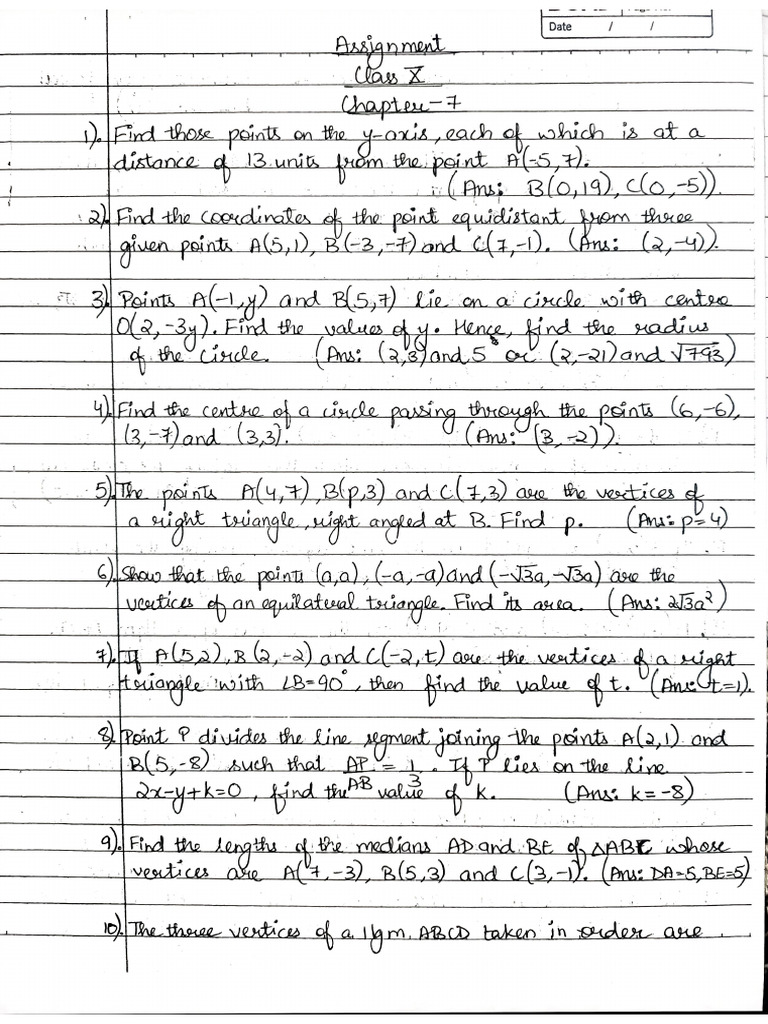 Date / /
Assignment
Class X
Chapter-7
1). Find those points on the y-axis, each of which is at a
distance of 13 units from the point A(-5,7).
(Ans: B(0,19), C(0,-5)).
2). Find the coordinates of the point equidistant from three
given points A(5,1), B(-3,-7) and C(7,-1). (Ans: (2,-4)).
3). Points A(-1,y) and B(5,7) lie on a circle with centre
O(2,-3y). Find the values of y. Hence, find the radius
of the circle. (Ans: (2,3) and 5 or (2,-21) and √793)
4). Find the centre of a circle passing through the points (6,-6),
(3,-7) and (3,3). (Ans: (3,-2)).
5). The points A(4,7), B(p,3) and C(7,3) are the vertices of
a right triangle, right angled at B. Find p. (Ans: p=4)
6). Show that the points (a,a), (-a,-a) and (-√3a,-√3a) are the
vertices of an equilateral triangle. Find its area. (Ans: 2√3a²)
7). If A(5,2), B(2,-2) and C(-2,t) are the vertices of a right
triangle with ∠B=90°, then find the value of t. (Ans: t=1).
8). Point P divides the line segment joining the points A(2,1) and
B(5,-8) such that AP/AB = 1/3. If P lies on the line
2x-y+k=0, find the value of k. (Ans: k=-8)
9). Find the lengths of the medians AD and BE of △ABC whose
vertices are A(7,-3), B(5,3) and C(3,-1). (Ans: DA=5, BE=5)
10). The three vertices of a llgm ABCD taken in order are